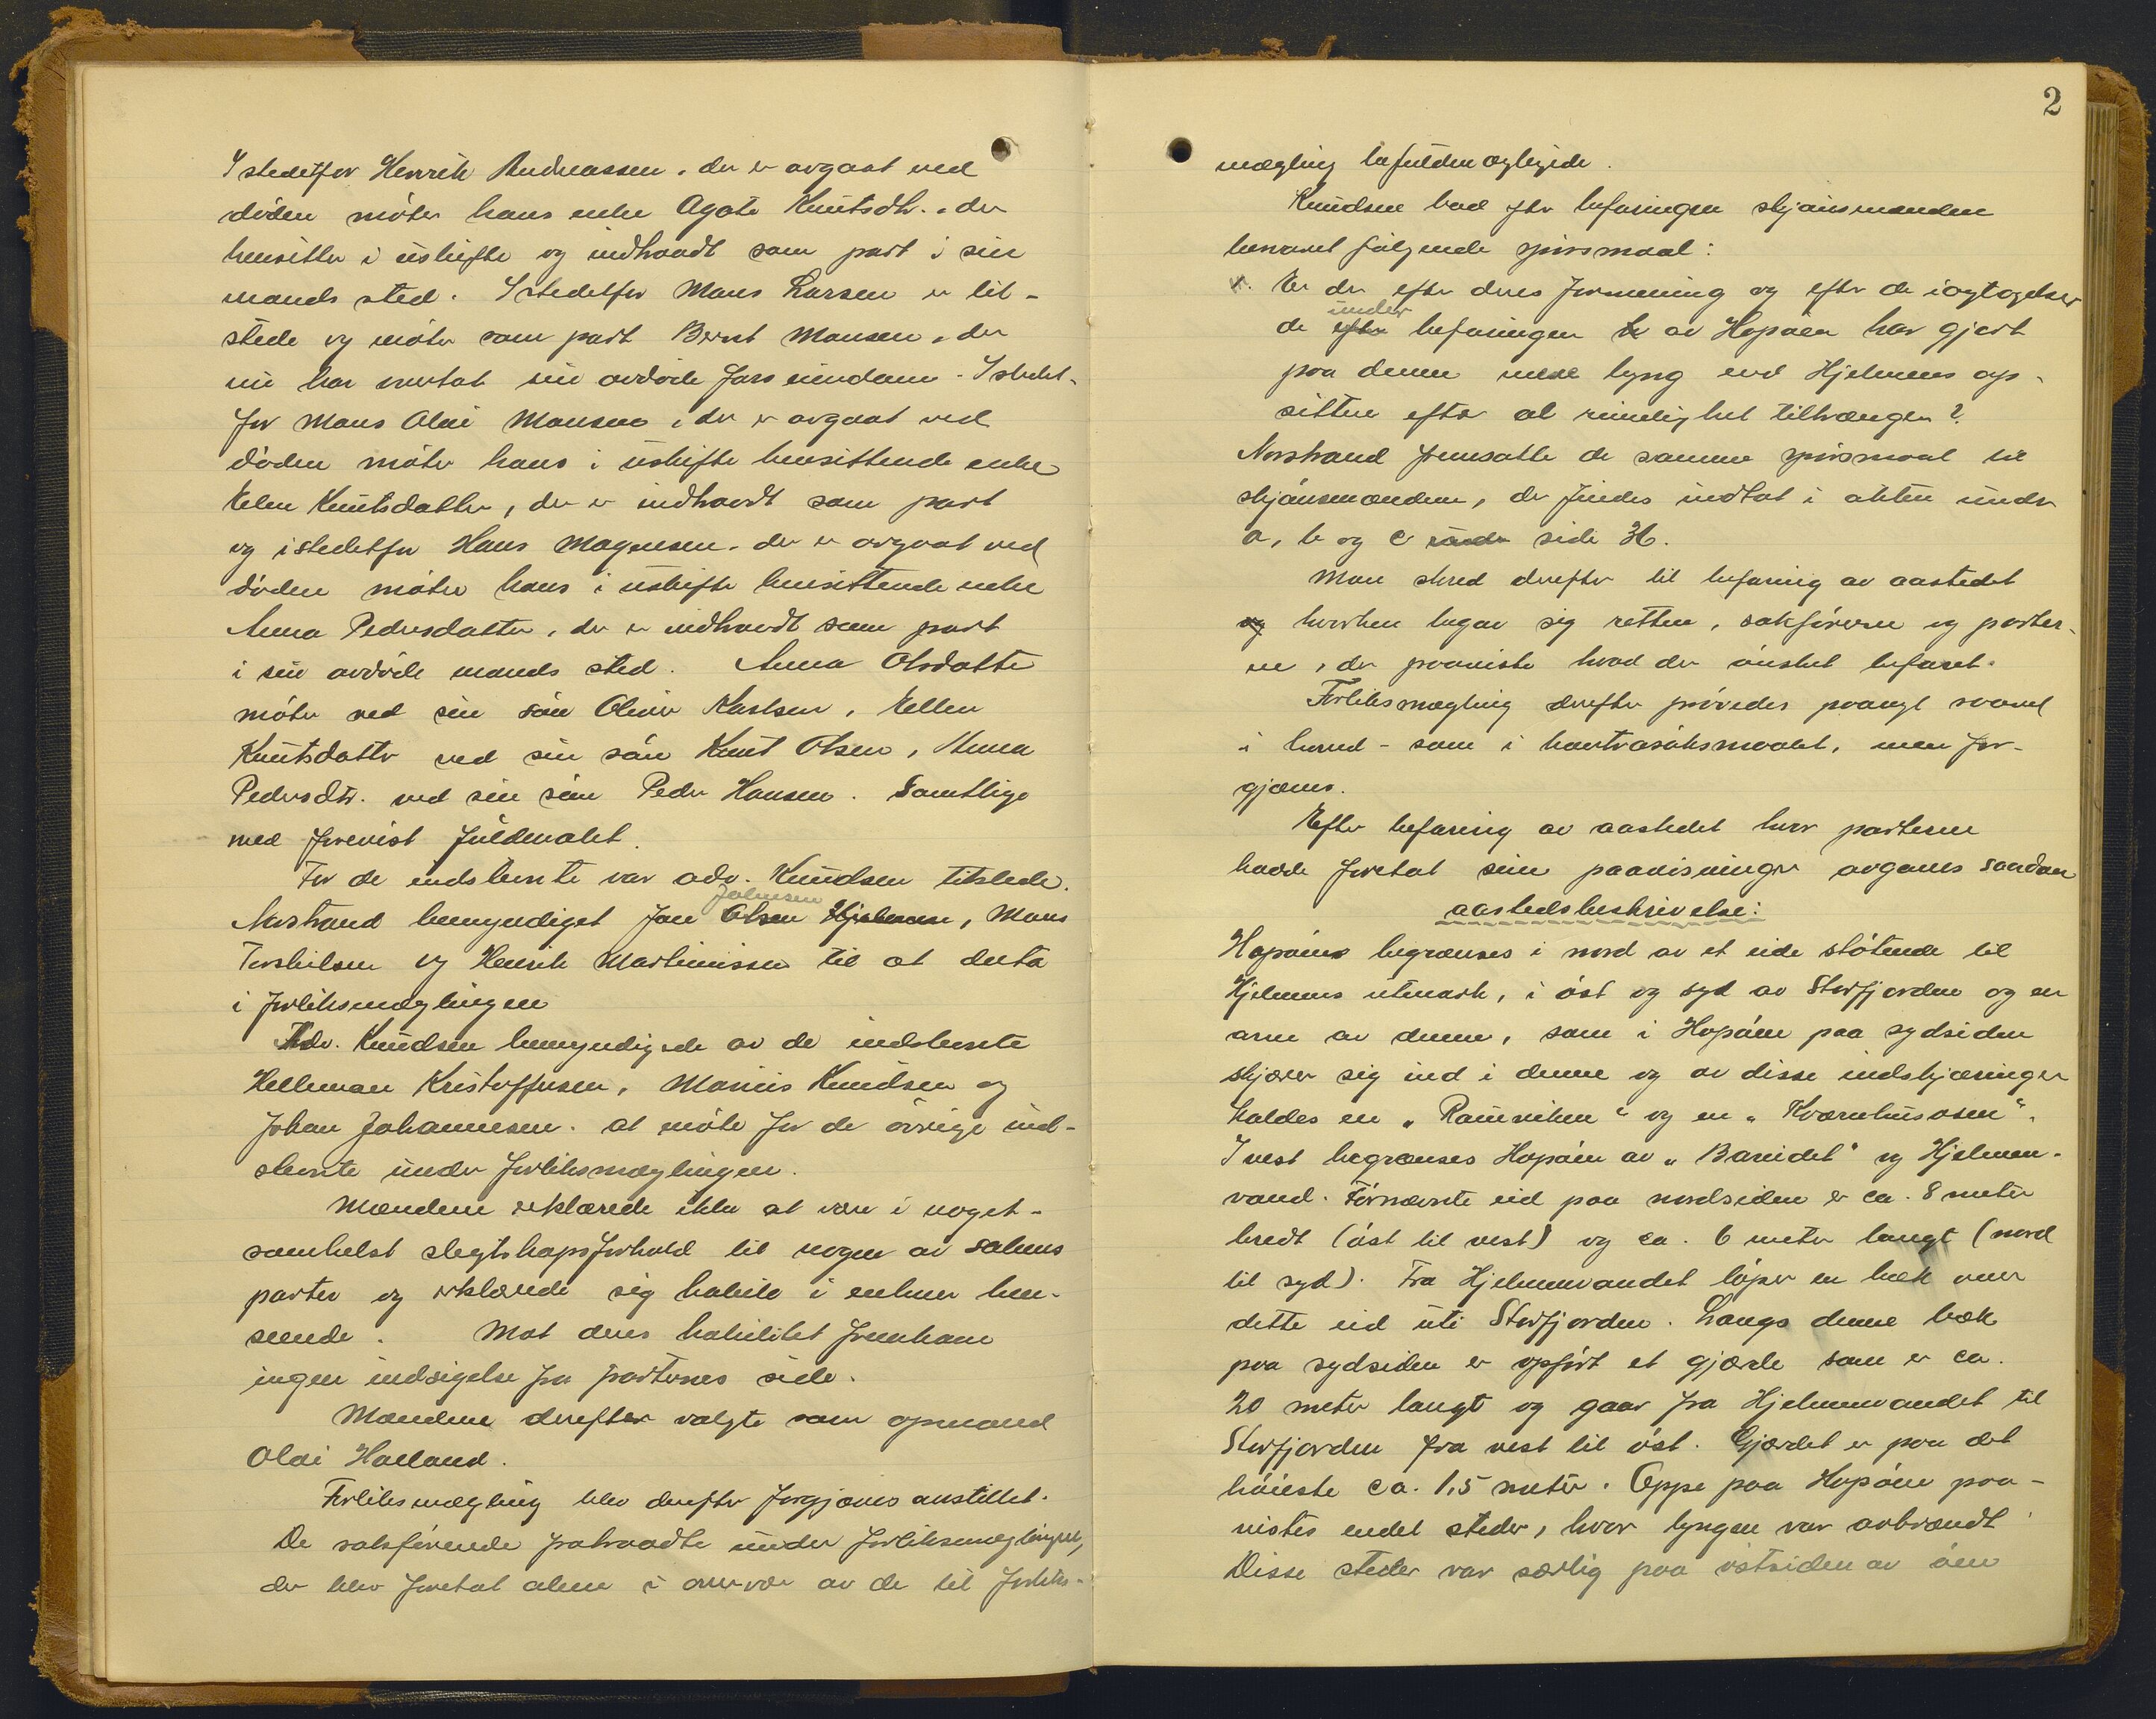 Istedetfor Henrik Andreassen, der er avgaat ved
döden möter hans enke Agate Knutsdtr., der
hensitter i uskifte og indtraadt som part i sin
mands sted. Istedetfor Mons Larsen er til-
stede og möter som part Bernt Monsen, der
nu har overtat sin avdöde fars eiendom. Istedet-
for Mons Olai Monsen, der er avgaat ved
döden möter hans i uskifte hensittende enke
Elen Knutsdatter, der er indtraadt som part
og istedetfor Hans Magnusen, der er avgaat ved
döden möter hans i uskifte hensittende enke
Anna Pedersdatter, der er indtraadt som part
i sin avdöde mands sted. Anna Olsdatter
möter ved sin sön Oliver Karlsen, Ellen
Knutsdattr ved sin sön Knut Olsen, Anna
Pedersdtr. ved sin sön Peder Hansen. Samtlige
med forevist fuldmakt.
For de indstevnte var adv. Knudsen tilstede.
Johnsen
Norstrand bemyndiget Jon Olsen Hjelmen, Mons
Terskilsen og Henrik Martinussen til at delta
i forliksmæglingen
Adv. Knudsen bemyndigede av de indstevnte
Hellman Kristoffersen, Marius Knudsen og
Johan Johannesen at möte for de övrige ind-
stevnte under forliksmæglingen.
Mændene erklærede ikke at være i noget-
somhelst slegtskapsforhold til nogen av sakens
parter og erklærede sig habile i enhver hen-
seende. Mot deres habilitet fremkom
ingen indsigelse fra parternes side.
Mændene derefter valgte som opmand
Olai Haaland.
Forliksmægling blev derefter forgjæves anstillet.
De saksförende fratraadte under forliksmæglingen,
der blev foretat alene i overvær av de til forliks-
2
mægling befuldmægtigede.
Knudsen bad efter befaringen skjönsmændene
besvaret fölgende spörsmaal:
Er der efter deres formening og efter de iagttagelser
under
de efter befaringen av Hopöen har gjort
paa denne mere lyng end Hjelmens op-
sittere efter al rimelighet tiltrænger?
Norstrand fremsatte de samme spörsmaal til
skjönsmændene, der findes indtat i akten under
a, b og c under side 36.
Man skred derefter til befaring av aastedet
og hvorhen begav sig retten, sakförerne og parter-
ne, der paaviste hvad der önsket befaret.
Forliksmægling derefter prövedes paanyt saavel
i hoved- som i kontrasöksmaalet, men for-
gjæves.
Efter befaring av aastedet hvor parterne
hadde foretat sine paavisninger avgaves saadan
aastedsbeskrivelse:
Hopöens begrænses i nord av et eide stötende til
Hjelmens utmark, i öst og syd av Storfjorden og en
arm av denne, som i Hopöen paa sydsiden
skjærer sig ind i denne og av disse indskjæringer
kaldes en "Ramsviken" og en "Kværnhusosen".
I vest begrænses Hopöen av "Bareidet" og Hjelmen-
vand. Förnævnte eid paa nordsiden er ca. 8 meter
bredt (öst til vest) og ca. 6 meter langt (nord
til syd). Fra Hjelmenvandet löper en bæk over
dette eid uti Storfjorden. Langs denne bæk
paa sydsiden er opfört et gjærde som er ca.
20 meter langt og gaar fra Hjelmenvandet til
Storfjorden fra vest til öst. Gjærdet er paa det
höieste ca. 1,5 meter. Oppe paa Hopöen paa-
vistes endel steder, hvor lyngen var avbrændt
Disse steder var særlig paa östsiden av öen